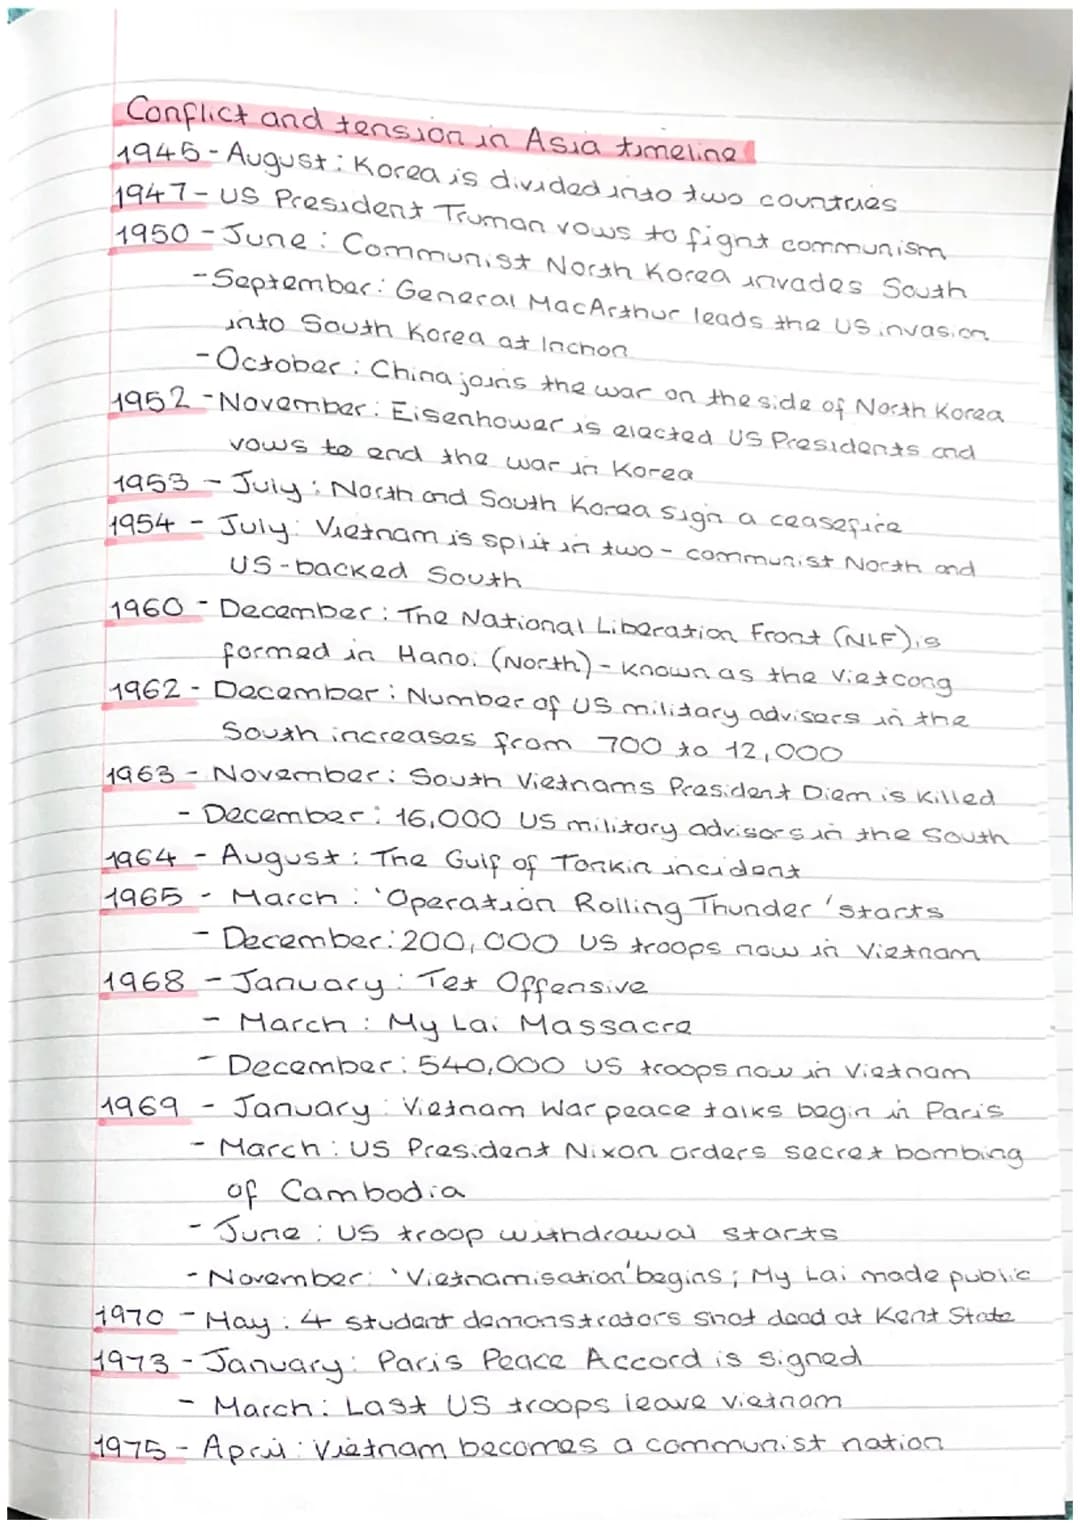 Conflict and tension in Asia timeline
1945 - August: Korea is divided into two countries
1947 - US President Truman vows to fight communism
1950 - June: Communist North Korea invades South
- September: General MacArthur leads the US invasion
into South Korea at Inchon
- October: China joins the war on the side of North Korea
1952 - November: Eisenhower is elected US Presidents and
vows to end the war in Korea
1953 - July: North and South Korea sign a ceasefire
1954 - July: Vietnam is split in two - communist North and
US-backed South
1960 - December: The National Liberation Front (NLF) is
formed in Hanoi (North) - known as the Vietcong
1962 - December: Number of US military advisers in the
South increases from 700 to 12,000
1963 - November: South Vietnams President Diem is killed
- December: 16,000 US military advisors in the South
1964 - August: The Gulf of Tonkin incident
1965 - March: 'Operation Rolling Thunder' starts
- December: 200,000 US troops now in Vietnam
1968 - January: Tet Offensive
- March: My Lai Massacre
- December: 540,000 US troops now in Vietnam
1969 - January: Vietnam War peace talks begin in Paris
- March: US President Nixon orders secret bombing
of Cambodia
- June: US troop withdrawal starts
- November: 'Vietnamisation' begins; My Lai made public
1970 - May: 4 student demonstrators shot dead at Kent State
1973 - January: Paris Peace Accord is signed
- March: Last US troops leave Vietnam
1975 - April: Vietnam becomes a communist nation